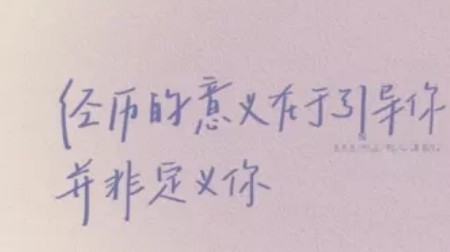 经历的意义在于引导你
并非定义你